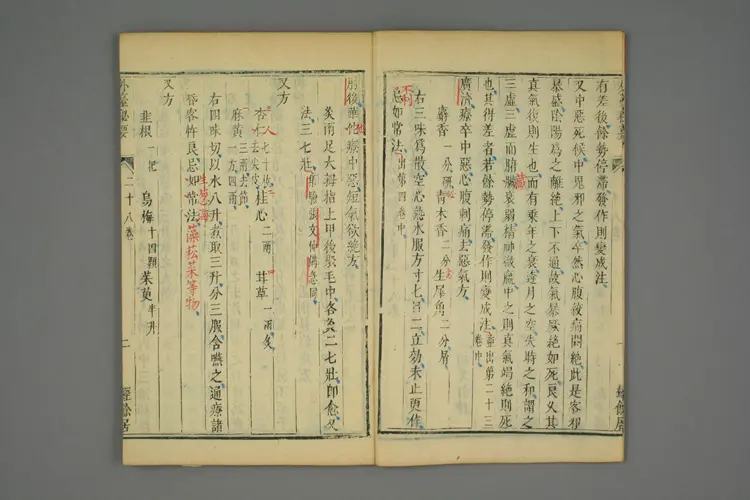 有差後餘勢停滯發作則變成注
又中惡死候中鬼邪之氣卒然心腹絞痛悶絕此是客邪
暴盛陰陽為之離絕上下不通故氣暴厥絕如死良久其
真氣復則生也而有乘年之衰逢月之空失時之和謂之
三虛三虛而腑臟衰弱精神微羸中之則真氣竭絕則死
也其得差者若餘勢停滯發作則變成注並出第二十三卷中
廣濟療卒中惡心腹刺痛去惡氣方
麝香一分 青木香二分 生犀角二分屑
右三味為散空心熱水服方寸匕日二立効未止更作
不利
忌如常法出第四卷中
肘後華佗療中惡短氣欲絕方
灸兩足大拇指上甲後聚毛中各灸二七壯即愈又
法三七壯
又方
杏人七十枚去尖皮 桂心二兩 甘草一兩炙
麻黃三兩去節一方四兩
右四味切以水八升煮取三升分三服含嚥之通療諸
昏客忤良忌如常法生葱海藻菘菜等物
又方
韭根一把 烏梅十四顆 茱萸半升
外臺秘要
二十八卷
二
經餘居